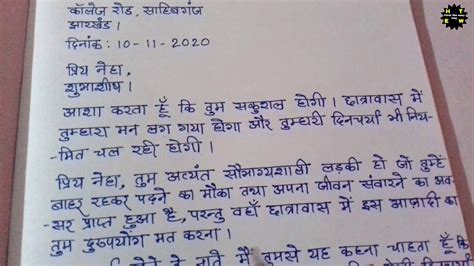 कॉलेज रोड, साहिबगंज
झारखंड।
दिनांक: 10-11-2020
प्रिय नेहा,
शुभाशीष।
आशा करता हूँ कि तुम सकुशल होगी। छात्रावास में
तुम्हारा मन लग गया होगा और तुम्हारी दिनचर्या भी निय-
-मित चल रही होगी।
प्रिय नेहा, तुम अत्यंत सौभाग्यशाली लड़की हो जो तुम्हें
बाहर रहकर पढ़ने का मौका तथा अपना जीवन संवारने का अव-
सर प्राप्त हुआ है, परन्तु वहाँ छात्रावास में इस आज़ादी का
तुम दुरुपयोग मत करना।
होने के नाते मैं तुमसे यह कहना चाहता हूँ कि